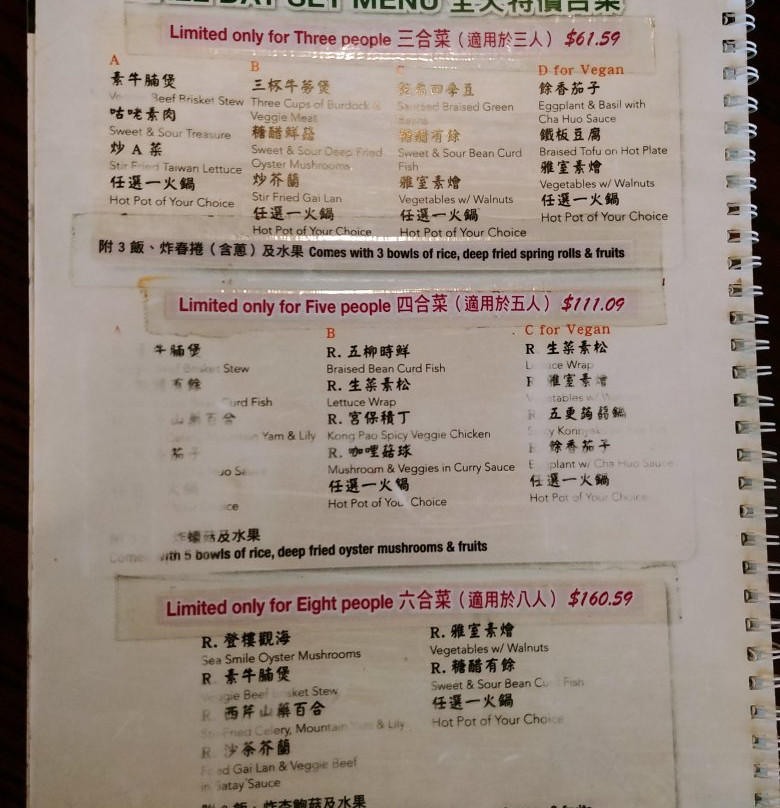 DAY SET MENU 全天特價合菜
Limited only for Three people 三合菜（適用於三人） $61.59
A
素牛腩煲
Beef Brisket Stew
咕咾素肉
Sweet & Sour Treasure
炒 A 菜
Stir Fried Taiwan Lettuce
任選一火鍋
Hot Pot of Your Choice
B
三杯牛蒡煲
Three Cups of Burdock &
Veggie Meat
糖醋鮮菇
Sweet & Sour Deep Fried
Oyster Mushrooms
炒芥蘭
Stir Fried Gai Lan
任選一火鍋
Hot Pot of Your Choice
四季豆
Braised Green
糖醋有餘
Sweet & Sour Bean Curd
Fish
雅室素燴
Vegetables w/ Walnuts
任選一火鍋
Hot Pot of Your Choice
D for Vegan
餘香茄子
Eggplant & Basil with
Cha Huo Sauce
鐵板豆腐
Braised Tofu on Hot Plate
雅室素燴
Vegetables w/ Walnuts
任選一火鍋
Hot Pot of Your Choice
附 3 飯、炸春捲（含蔥）及水果 Comes with 3 bowls of rice, deep fried spring rolls & fruits
Limited only for Five people 四合菜（適用於五人） $111.09
A
牛腩煲
Stew
有餘
Curd Fish
山藥百合
Yam & Lily
茄子
火鍋
B
R. 五柳時鮮
Braised Bean Curd Fish
R. 生菜素松
Lettuce Wrap
R. 宮保積丁
Kong Pao Spicy Veggie Chicken
R. 咖哩菇球
Mushroom & Veggies in Curry Sauce
任選一火鍋
Hot Pot of You Choice
C for Vegan
R 生菜素松
Wrap
雅室素燴
w/
五更蒟蒻鍋
餘香茄子
w/ Cha Huo Sauce
任選一火鍋
Hot Pot of Your Choice
炸蠔菇及水果
with 5 bowls of rice, deep fried oyster mushrooms & fruits
Limited only for Eight people 六合菜（適用於八人） $160.59
R. 登樓觀海
Sea Smile Oyster Mushrooms
R 素牛腩煲
Beef Stew
R 西芹山藥百合
Fried Celery, Mountain & Lily
R. 沙茶芥蘭
Gai Lan & Veggie Beef
in Satay Sauce
R. 雅室素燴
Vegetables w/ Walnuts
R. 糖醋有餘
Sweet & Sour Bean Fish
任選一火鍋
Hot Pot of Your Choice
飯、炸杏鮑菇及水果